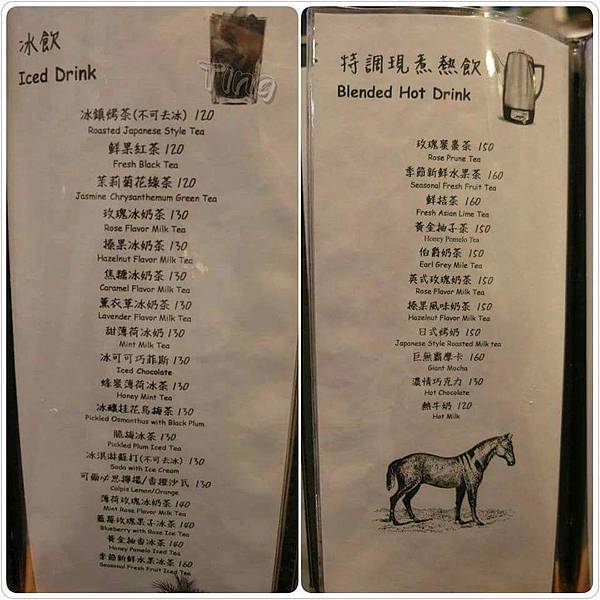 冰飲
Iced Drink
Ting
冰鎮烤茶(不可去冰) 120
Roasted Japanese Style Tea
鮮果紅茶 120
Fresh Black Tea
茉莉菊花綠茶 120
Jasmine Chrysanthemum Green Tea
玫瑰冰奶茶 130
Rose Flavor Milk Tea
榛果冰奶茶 130
Hazelnut Flavor Milk Tea
焦糖冰奶茶 130
Caramel Flavor Milk Tea
薰衣草冰奶茶 130
Lavender Flavor Milk Tea
甜薄荷冰奶 130
Mint Milk Tea
冰可可巧菲斯 130
Iced Chocolate
蜂蜜薄荷冰茶 130
Honey Mint Tea
冰釀桂花烏梅茶 130
Pickled Osmanthus with Black Plum
脆梅冰茶 130
Pickled Plum Iced Tea
冰淇淋蘇打(不可去冰) 130
Soda with Ice Cream
可爾必思檸檬/香橙沙瓦 130
Calpis Lemon/Orange
薄荷玫瑰冰奶茶 140
Mint Rose Flavor Milk Tea
藍莓玫瑰果子冰茶 140
Blueberry with Rose Ice Tea
黃金柚香冰茶 140
Honey Pomelo Iced Tea
季節新鮮水果冰茶 160
Seasonal Fresh Fruit Iced Tea
特調現煮熱飲
Blended Hot Drink
玫瑰蜜棗茶 150
Rose Prune Tea
季節新鮮水果茶 160
Seasonal Fresh Fruit Tea
鮮桔茶 160
Fresh Asian Lime Tea
黃金柚子茶 150
Honey Pomelo Tea
伯爵奶茶 150
Earl Grey Mile Tea
英式玫瑰奶茶 150
Rose Flavor Milk Tea
榛果風味奶茶 150
Hazelnut Flavor Milk Tea
日式烤奶 150
Japanese Style Roasted Milk tea
巨無霸摩卡 160
Giant Mocha
濃情巧克力 130
Hot Chocolate
熱牛奶 120
Hot Milk